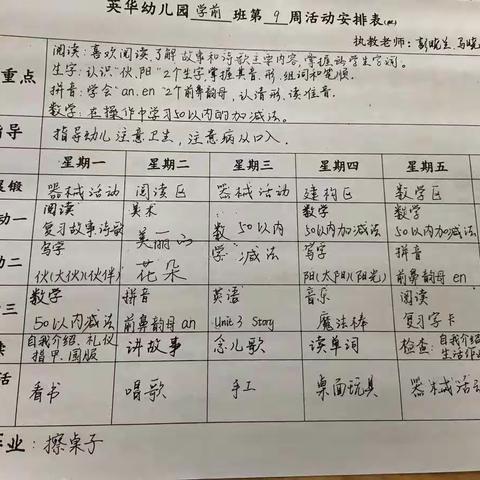 英华幼儿园 学前 班第 9 周活动安排表
执教老师：
重点
阅读：喜欢阅读，了解故事和诗歌主要内容，掌握
生字：认识"伙、阳"2个生字，掌握其音、形、组词和笔顺。
拼音：学会"an、en"2个前鼻韵母，认清形、读准音。
数学：在操作中学习50以内的加减法。
指导 指导幼儿注意卫生，注意病从口入。
星期一 星期二 星期三 星期四 星期五
晨锻 器械活动 阅读区 器械活动 建构区 数学区
动一 阅读 美术 数学 数学
复习故事、诗歌 美丽的 数 50以内 50以内加减法 50以内加减法
动二 写字 花朵 学 减法 写字 拼音
伙(大伙)(伙伴) 阳(太阳)(阳光) 前鼻韵母 en
三 数学 拼音 英语 音乐 阅读
50以内减法 前鼻韵母 an Unit 3 Story 魔法棒 复习字卡
自我介绍、礼仪 讲故事 念儿歌 读单词 检查：自我介绍
指甲、园服 生活作
活 看书 唱歌 手工 桌面玩具 器械活动
业：擦桌子